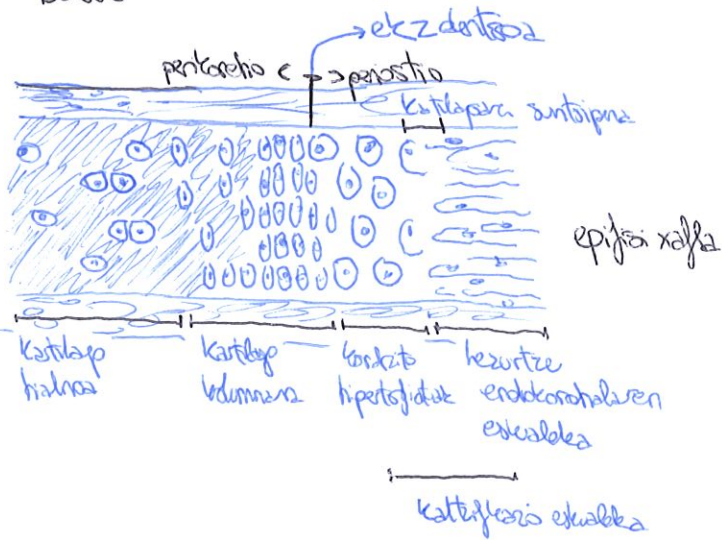 → ekz dentsoa
perikondrio < → > periostio
kartilagoaren suntsipena
epifisi xafla
kartilago
hialinoa
kartilago
kolumnarra
kondrozito
hipertrofiatuak
hezurtze
endokondralaren
eskualdea
kaltzifikazio eskualdea